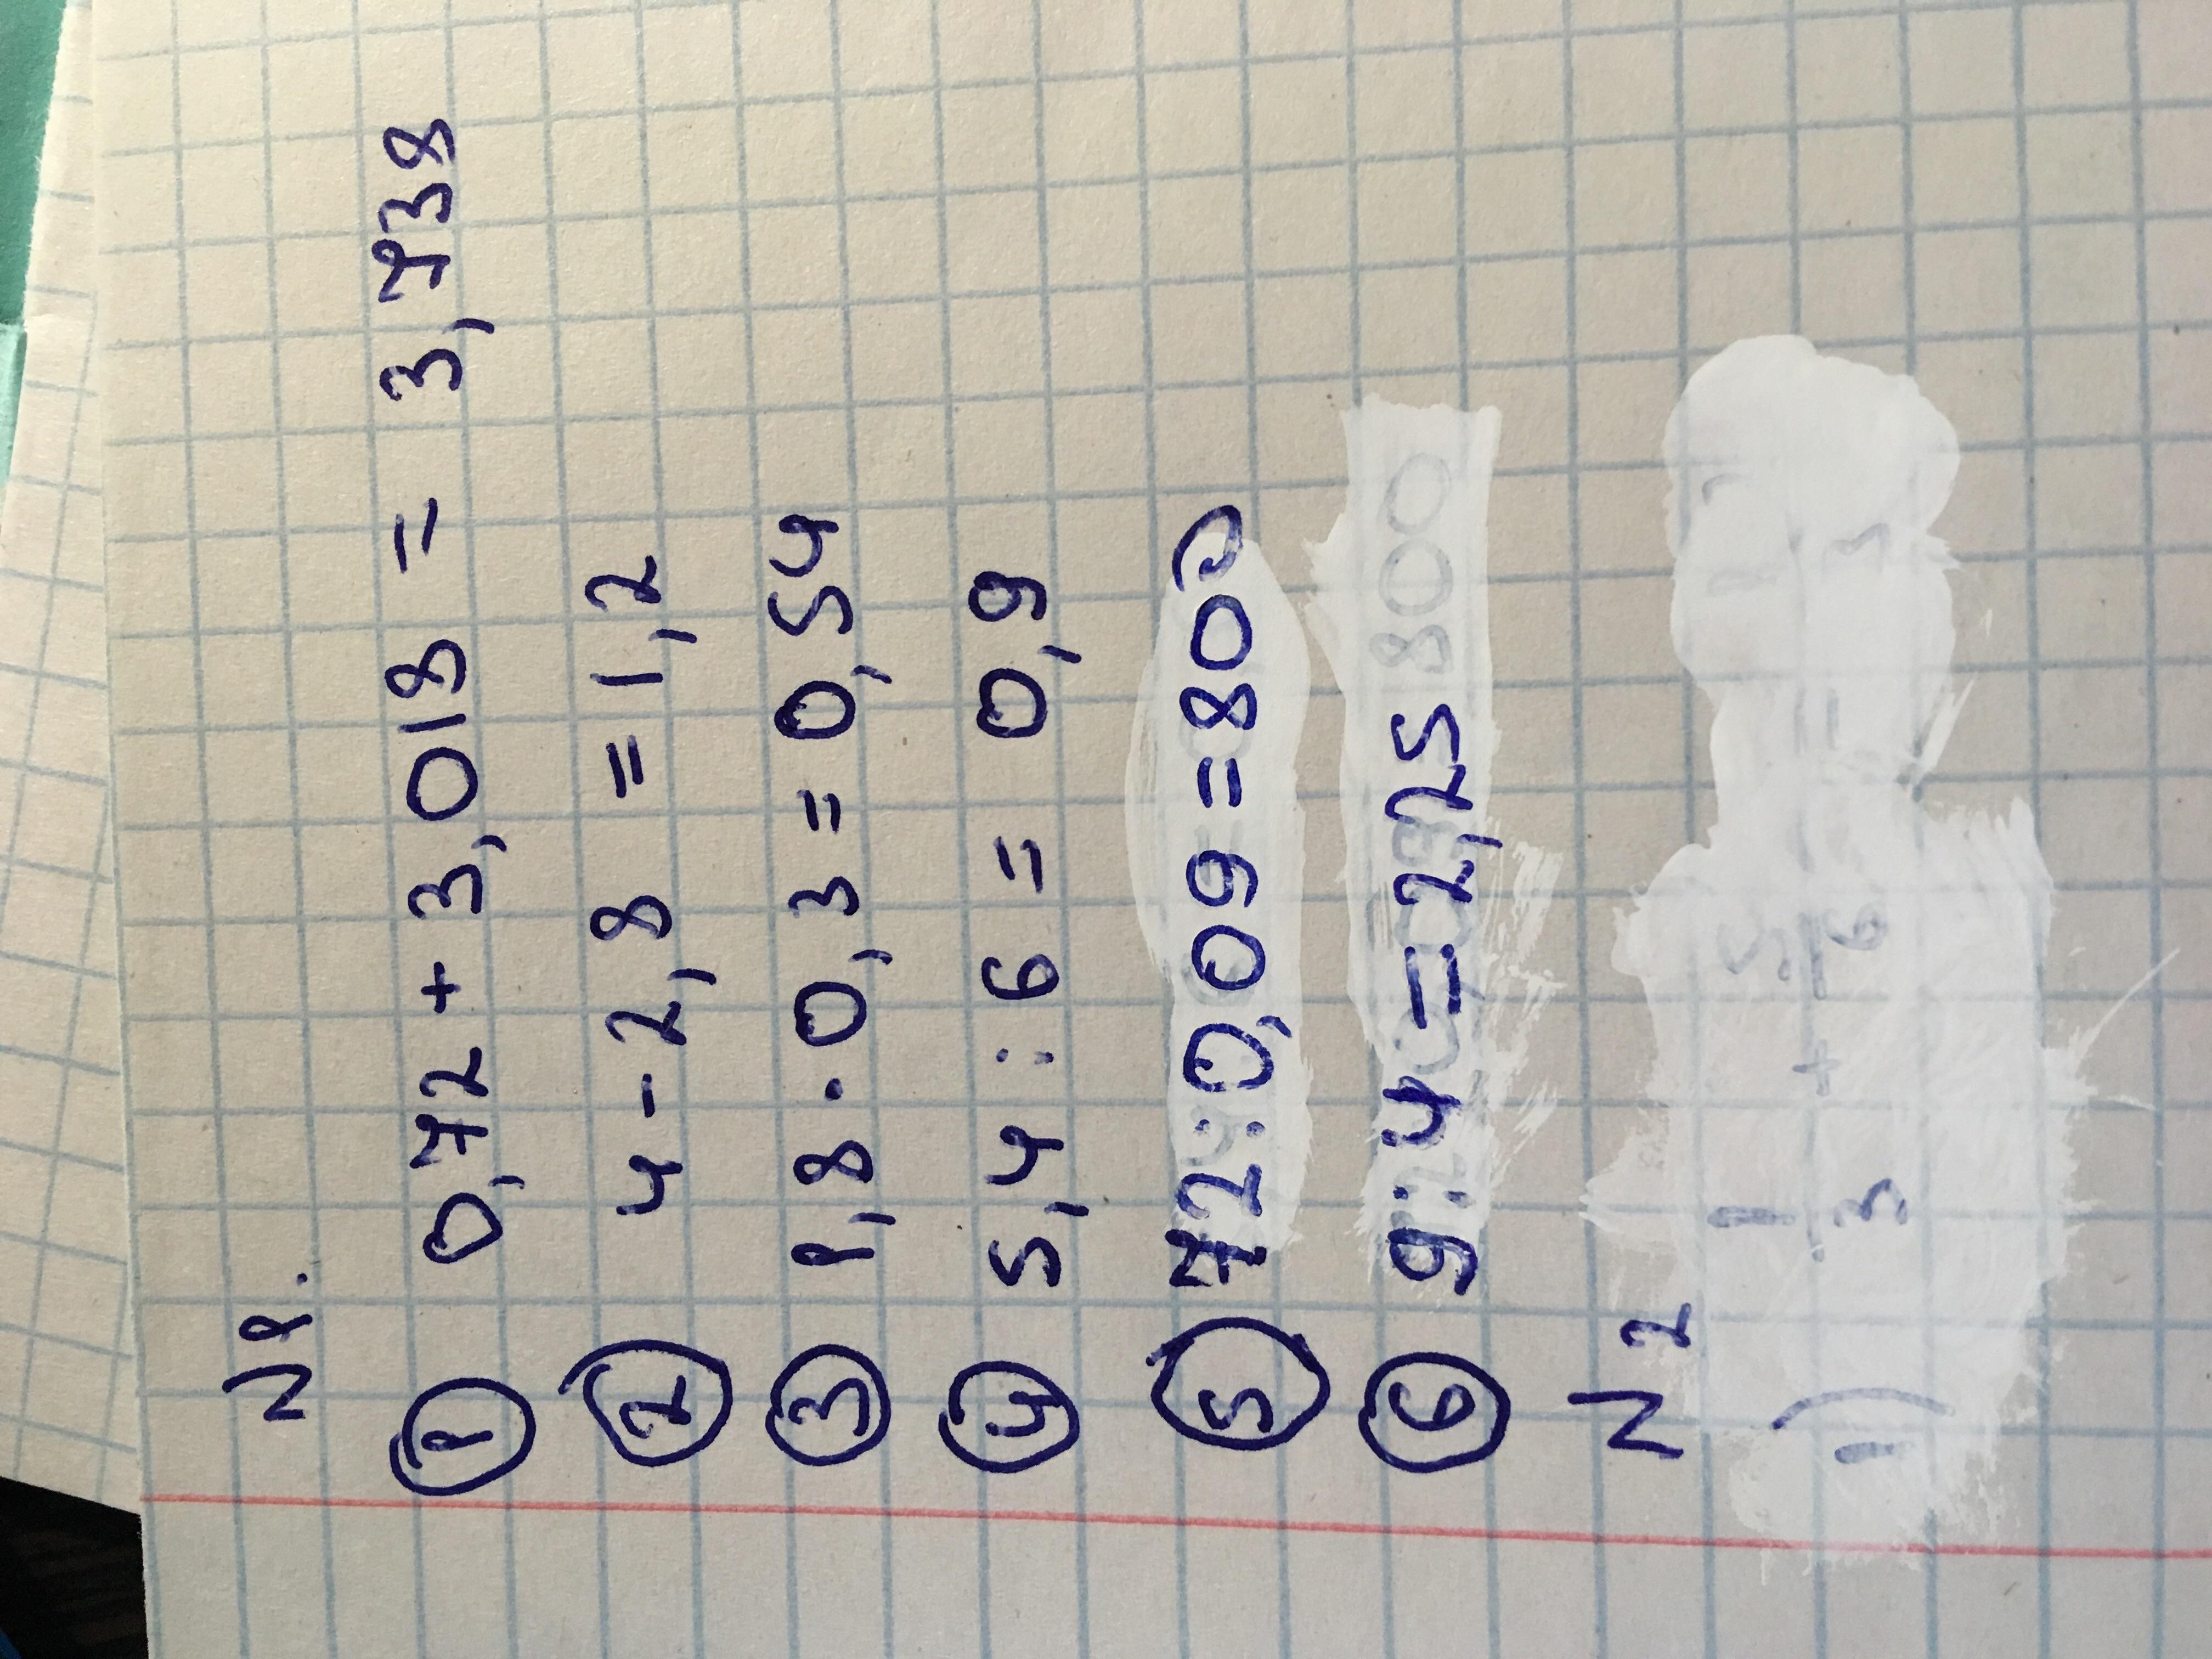 N 1.
① 0,72 + 3,018 = 3,738
② 4 - 2,8 = 1,2
③ 1,8 · 0,3 = 0,54
④ 5,4 : 6 = 0,9
⑤ 72 : 0,09 = 800
⑥ 9 : 4 = 2,25
N 2
1) 1/3 + 5/6 =